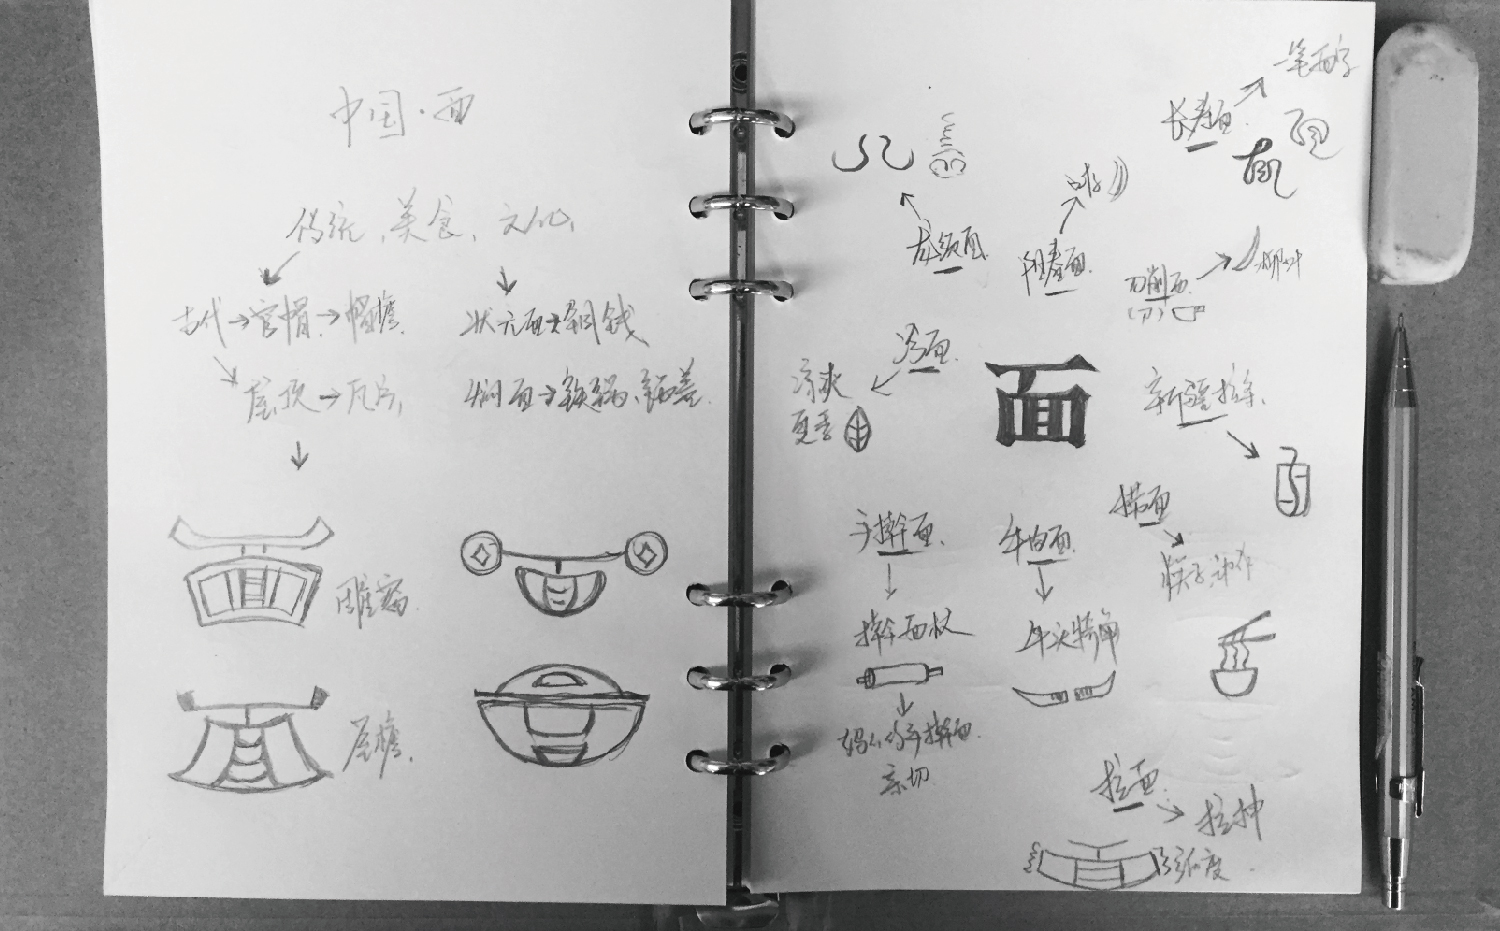 中国·面
传统、美食、文化、
古代→官帽→帽檐
状元面→铜钱
屋顶→瓦片、
焖面→铁锅、锅盖
屋檐
一笔面字
长寿面
龙须面
阳春面
刀削面
柳叶
冷面
凉爽
夏季
面
新疆拉条
手擀面
牛肉面
捞面
筷子动作
擀面杖
牛头犄角
妈妈的手擀面
亲切
拉面
拉抻
弧度